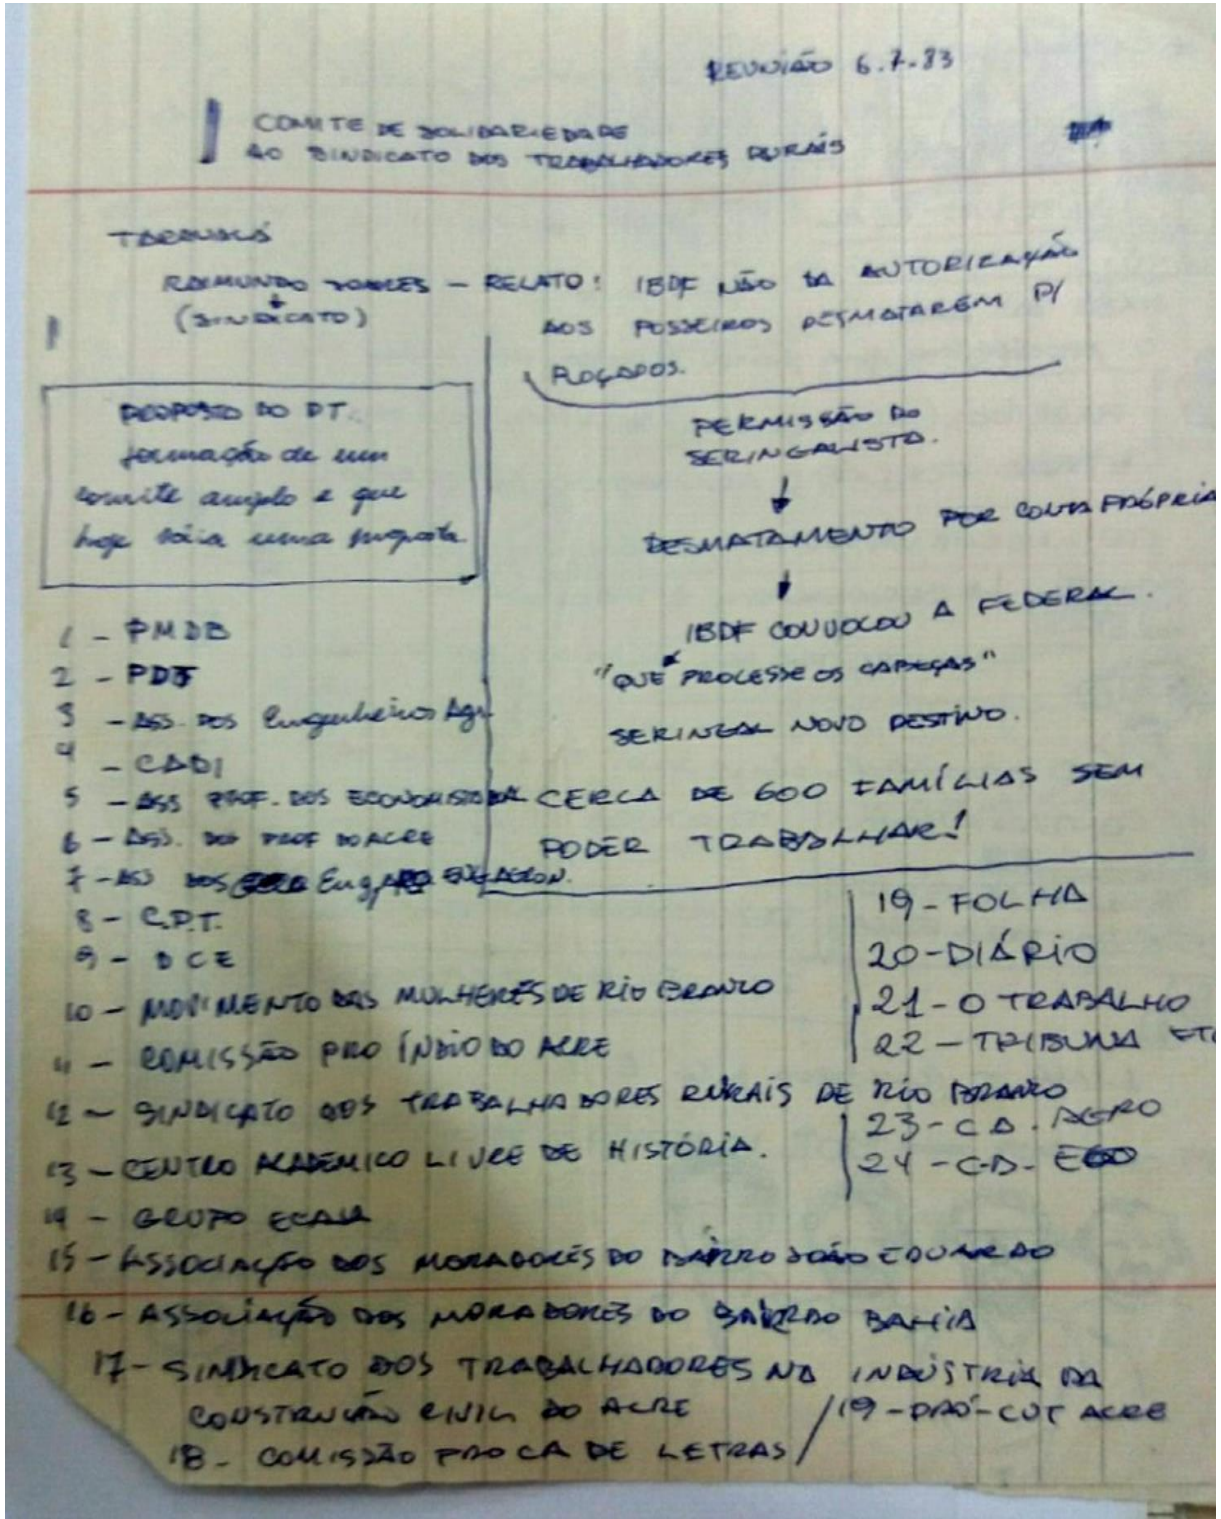 REUNIÃO 6.7.83
COMITE DE SOLIDARIEDADE
AO SINDICATO DOS TRABALHADORES RURAIS
TARAUACÁ
RAIMUNDO SOARES - RELATO: IBDF NÃO DA AUTORIZAÇÃO
(SINDICATO)
AOS POSSEIROS DESMATAREM P/
ROÇADOS.
PROPOSTO DO PT.
formação de um
comite amplo e que
hoje uma proposta
PERMISSÃO DO
SERINGALISTA.
DESMATAMENTO POR CONTA PRÓPRIA
IBDF CONVOCOU A FEDERAL.
"QUE PROCESSE OS CABEÇAS"
SERINGAL NOVO DESTINO.
CERCA DE 600 FAMÍLIAS SEM
PODER TRABALHAR!
1 - PMDB
2 - PDT
3 - ASS. DOS Engenheiros Agr.
4 - CADI
5 - ASS PROF. DOS ECONOMISTAS
6 - ASS. DOS PROF DO ACRE
7 - ASS DOS Eng.
8 - C.P.T.
9 - DCE
10 - MOVIMENTO DAS MULHERES DE RIO BRANCO
11 - COMISSÃO PRO ÍNDIO DO ACRE
12 - SINDICATO DOS TRABALHADORES RURAIS DE RIO BRANCO
13 - CENTRO ACADEMICO LIVRE DE HISTÓRIA.
14 - GRUPO
15 - ASSOCIAÇÃO DOS MORADORES DO BAIRRO JOÃO EDUARDO
16 - ASSOCIAÇÃO DOS MORADORES DO BAIRRO BAHIA
17 - SINDICATO DOS TRABALHADORES NA INDÚSTRIA DA
CONSTRUÇÃO CIVIL DO ACRE
18 - COMISSÃO PRO CA DE LETRAS / 19 - PRÓ-CUT ACRE
19 - FOLHA
20 - DIÁRIO
21 - O TRABALHO
22 - TRIBUNA ETC
23 - C.A. AGRO
24 - C.A. ECO